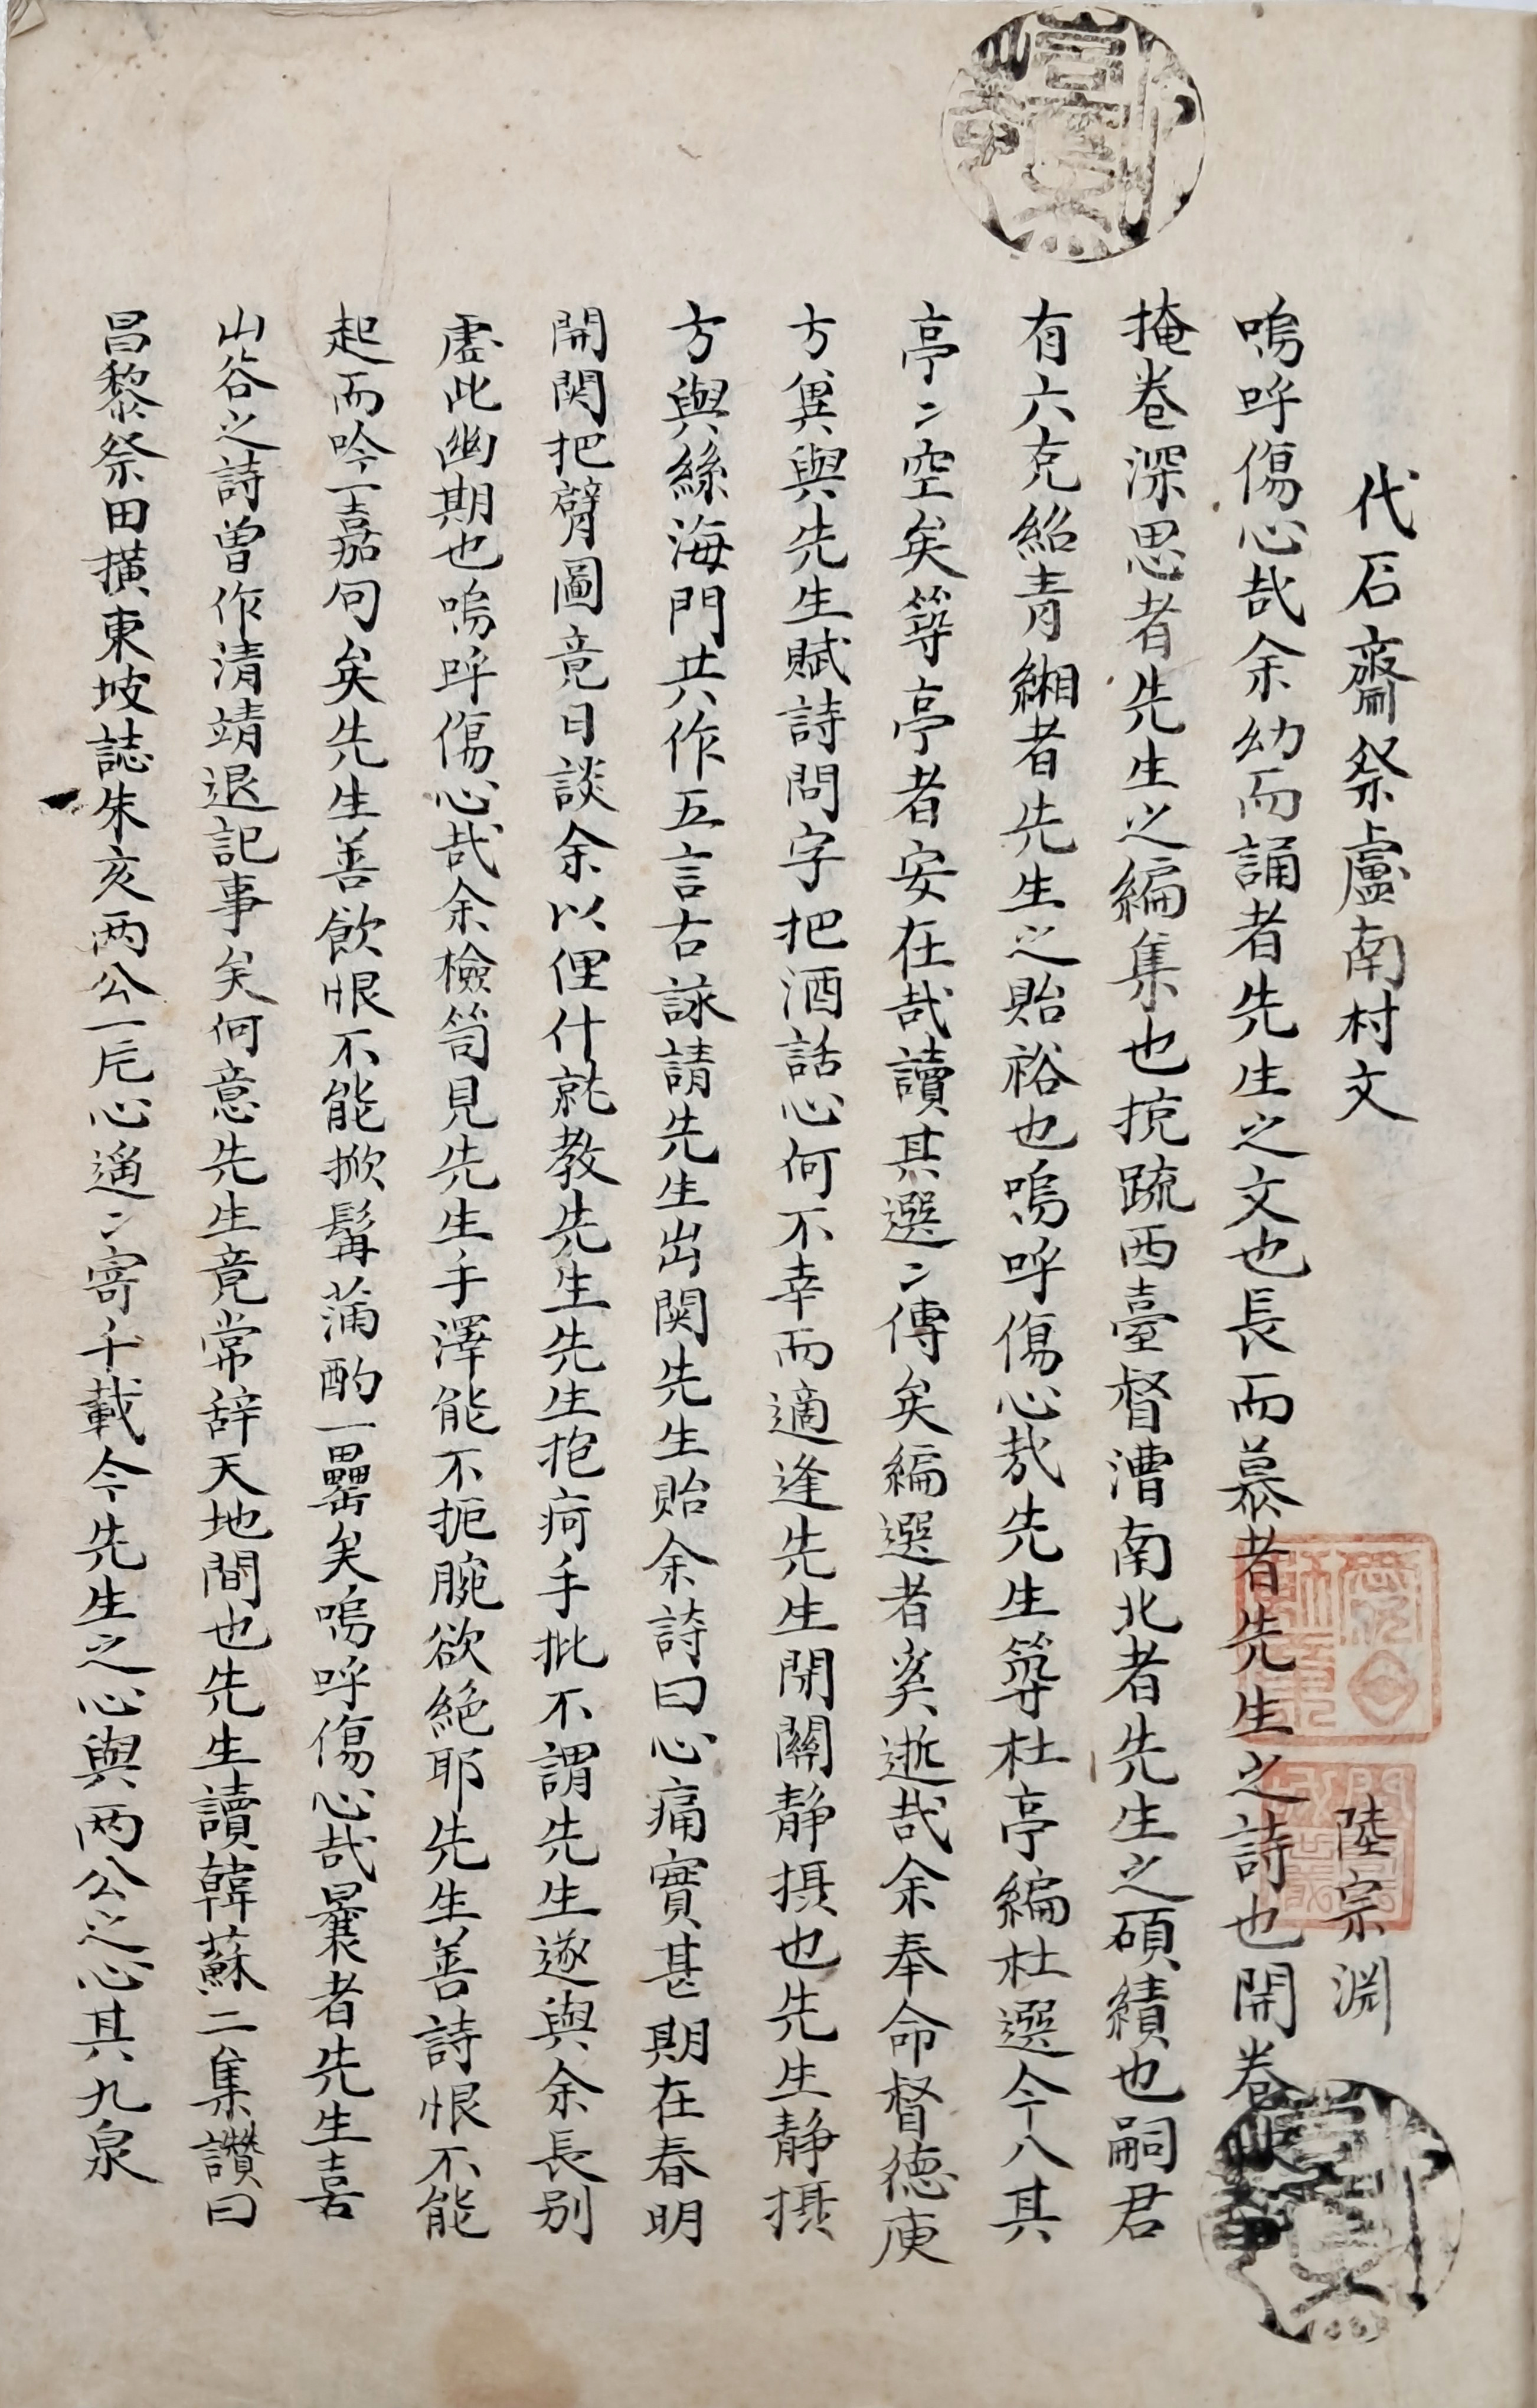 代石齋祭盧南村文
陸宗淵
嗚呼傷心哉余幼而誦者先生之文也長而慕者先生之詩也開卷
掩卷深思者先生之編集也抗疏西臺督漕南北者先生之碩績也嗣君
有六克紹青緗者先生之貽裕也嗚呼傷心哉先生築杜亭編杜選今八其
亭〻空矣築亭者安在哉讀其選〻傳矣編選者奚逝哉余奉命督德庾
方兾與先生賦詩問字把酒話心何不幸而適逢先生閉關靜摂也先生静摂
方與絲海門共作五言古詠請先生出関先生貽余詩曰心痛實甚期在春明
開関把臂圖竟日談余以俚什就教先生先生抱疴手批不謂先生遂與余長别
虛此幽期也嗚呼傷心哉余檢笥見先生手澤能不扼腕欲絶耶先生善詩恨不能
起而吟一嘉句矣先生善飲恨不能掀髯蒲酌一罍矣嗚呼傷心哉曩者先生喜
山谷之詩曽作清靖退記事矣何意先生竟常辞天地間也先生讀韓蘇二集讃曰
昌黎祭田横東坡誌朱亥两公一片心遥〻寄千載今先生之心與两公之心其九泉